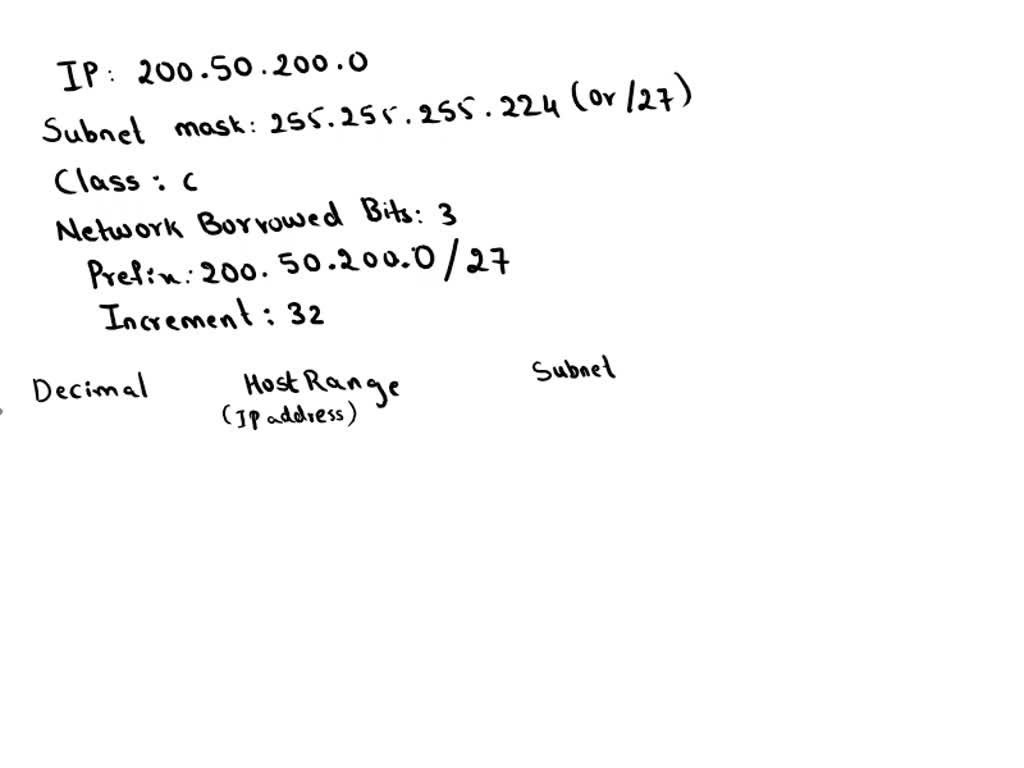 IP: 200.50.200.0
Subnet mask: 255.255.255.224 (or /27)
Class: c
Network Borrowed Bits: 3
Prefix: 200.50.200.0/27
Increment: 32
Decimal Host Range Subnet
(IP address)